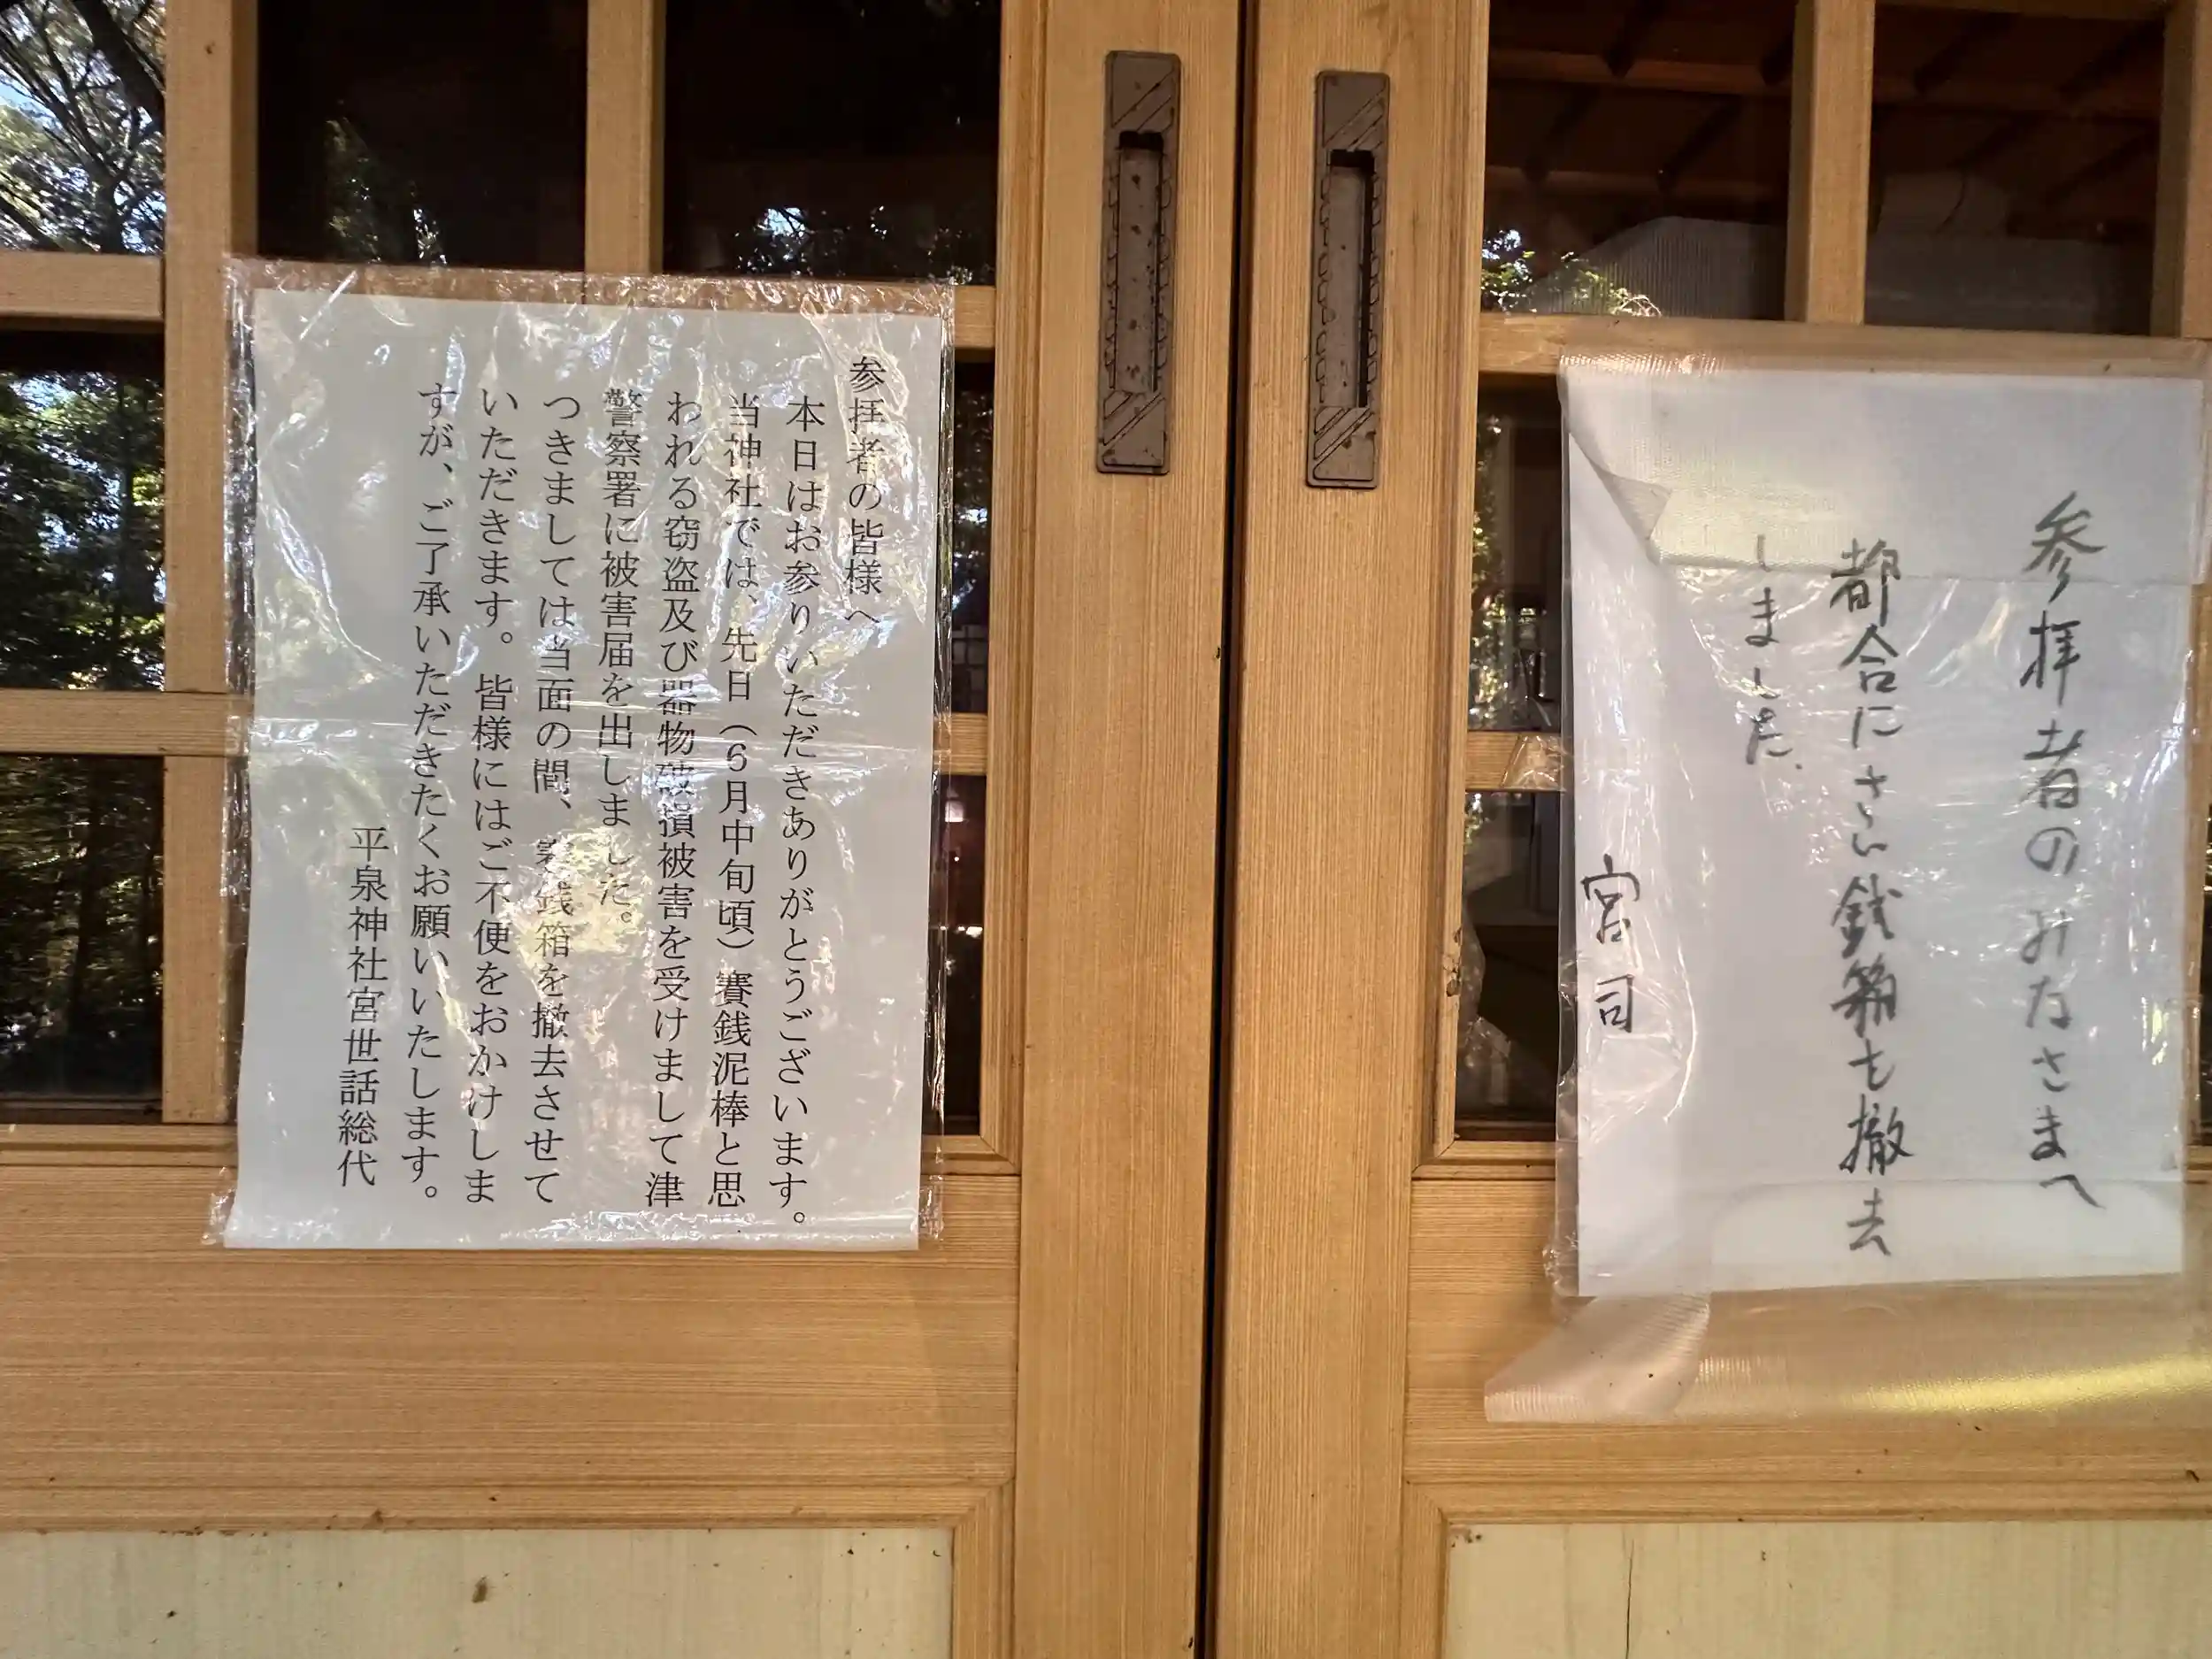 参拝者のみなさまへ
都合によりさい銭箱も撤去
しました、
宮司
参拝者の皆様へ
本日はお参りいただきありがとうございます。
当神社では、先日（6月中旬頃）賽銭泥棒と思
われる窃盗及び器物破損被害を受けまして津
警察署に被害届を出しました。
つきましては当面の間、賽銭箱を撤去させて
いただきます。皆様にはご不便をおかけしま
すが、ご了承いただきたくお願いいたします。
平泉神社宮世話総代